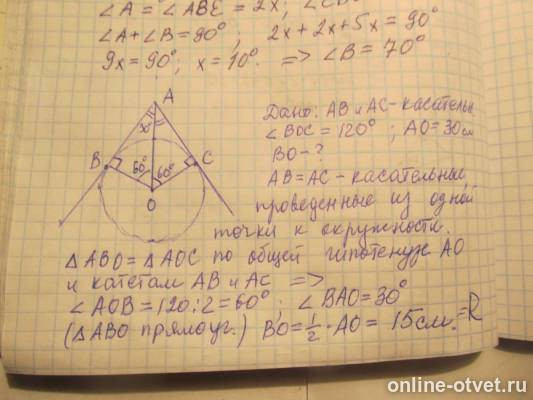 ∠A = ∠ABE = 2x;
∠A+∠B=90°; 2x+2x+5x=90°
9x=90°; x=10°. => ∠B=70°
A
B
C
60°
60°
O
Дано: AB и AC - касательн
∠BOC = 120°; AO=30см
BO-?
AB=AC - касательные,
проведенные из одной
точки к окружности.
△ABO=△AOC по общей гипотенузе AO
и катетам AB и AC =>
∠AOB=120:2=60°; ∠BAO=30°
(△ABO прямоуг.) BO=1/2·AO=15см.=R
online-otvet.ru